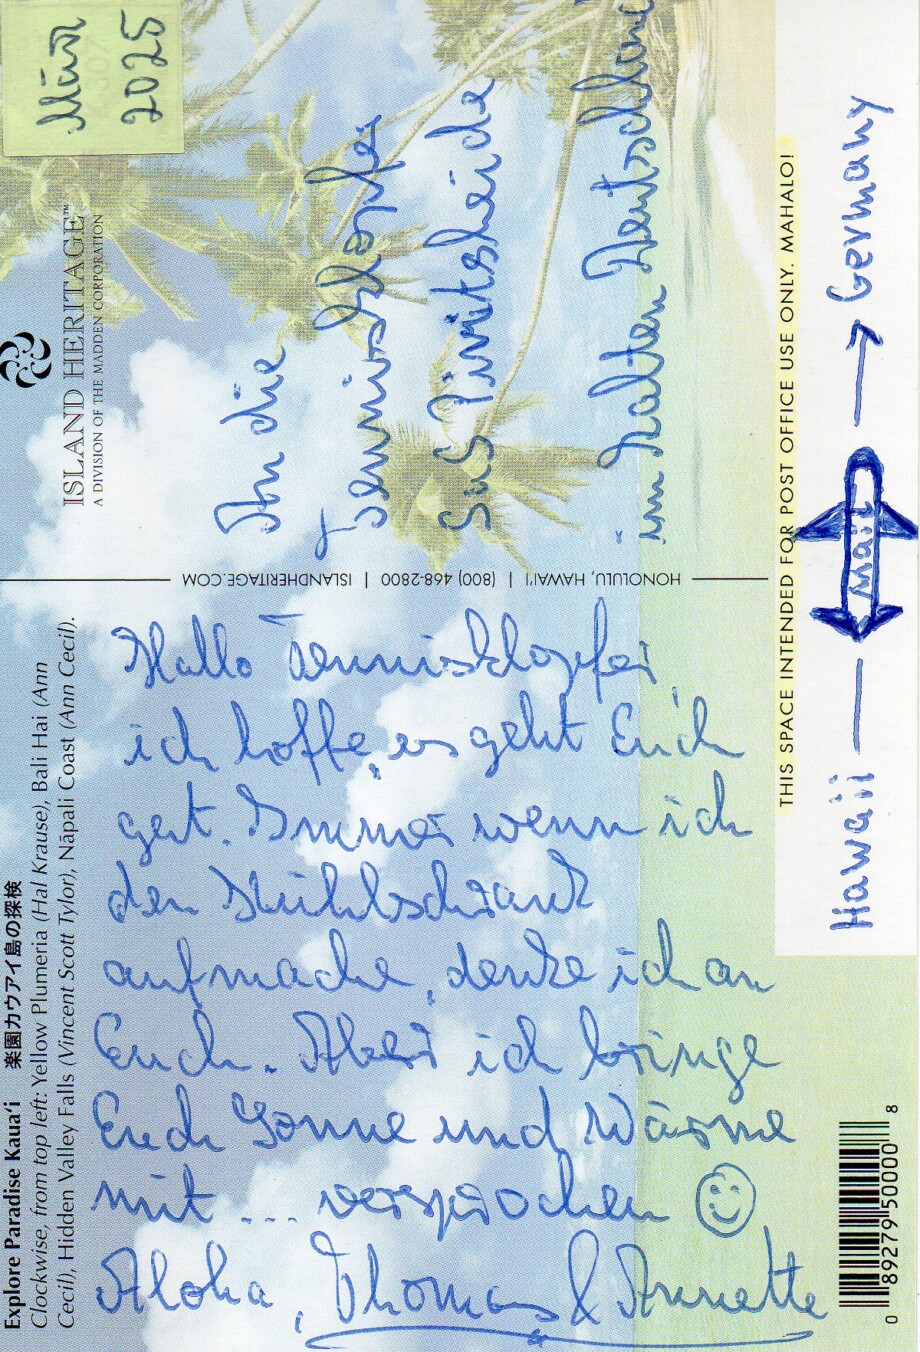 Hallo Tennisklopfer,
ich hoffe, es geht Euch
gut. Immer wenn ich
den Kühlschrank
aufmache, denke ich an
Euch. Aber ich bringe
Euch Sonne und Wärme
mit ... versprochen
Aloha, Thomas & Annette
März
2025
An die
Tennisklopfer
SuS Pivitsheide
im kalten Deutschland
Hawaii
Mail
Germany
ISLAND HERITAGE™
A DIVISION OF THE MADDEN CORPORATION
HONOLULU, HAWAI'I | (800) 468-2800 | ISLANDHERITAGE.COM
THIS SPACE INTENDED FOR POST OFFICE USE ONLY. MAHALO!
Explore Paradise Kaua'i 楽園カウアイ島の探検
Clockwise, from top left: Yellow Plumeria (Hal Krause), Bali Hai (Ann
Cecil), Hidden Valley Falls (Vincent Scott Tylor), Nāpali Coast (Ann Cecil).
0 89279 50000 8